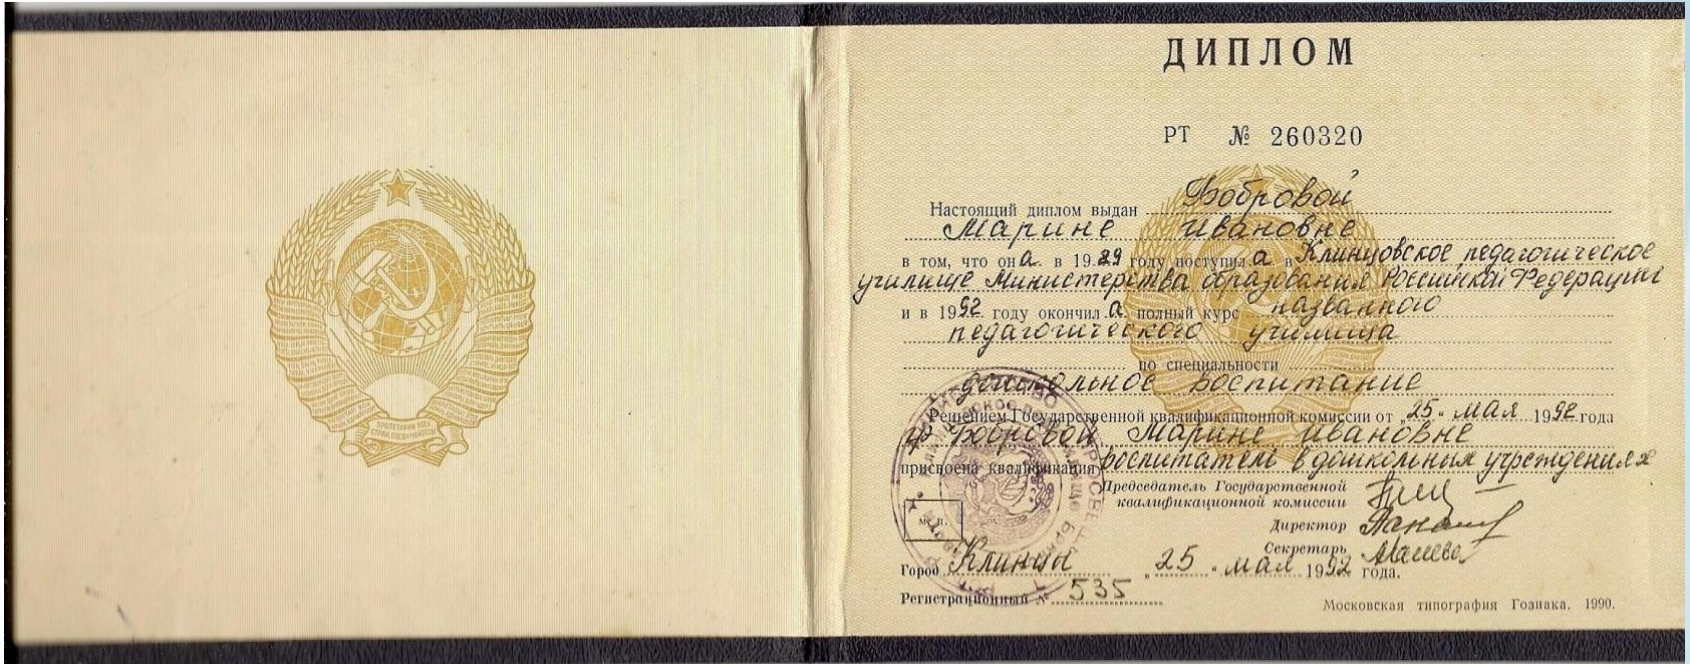 ДИПЛОМ
РТ № 260320
Настоящий диплом выдан Бобровой
Марине Ивановне
в том, что она в 1989 году поступила в Клинцовское педагогическое
училище Министерства образования Российской Федерации
и в 1992 году окончила полный курс названного
педагогического училища
по специальности
дошкольное воспитание
Решением Государственной квалификационной комиссии от „25" мая 1992 года
Бобровой Марине Ивановне
присвоена квалификация воспитатель в дошкольных учреждениях
Председатель Государственной
квалификационной комиссии
Директор
Секретарь
м. п.
Город Клинцы „25" мая 1992 года.
Регистрационный № 535
Московская типография Гознака. 1990.